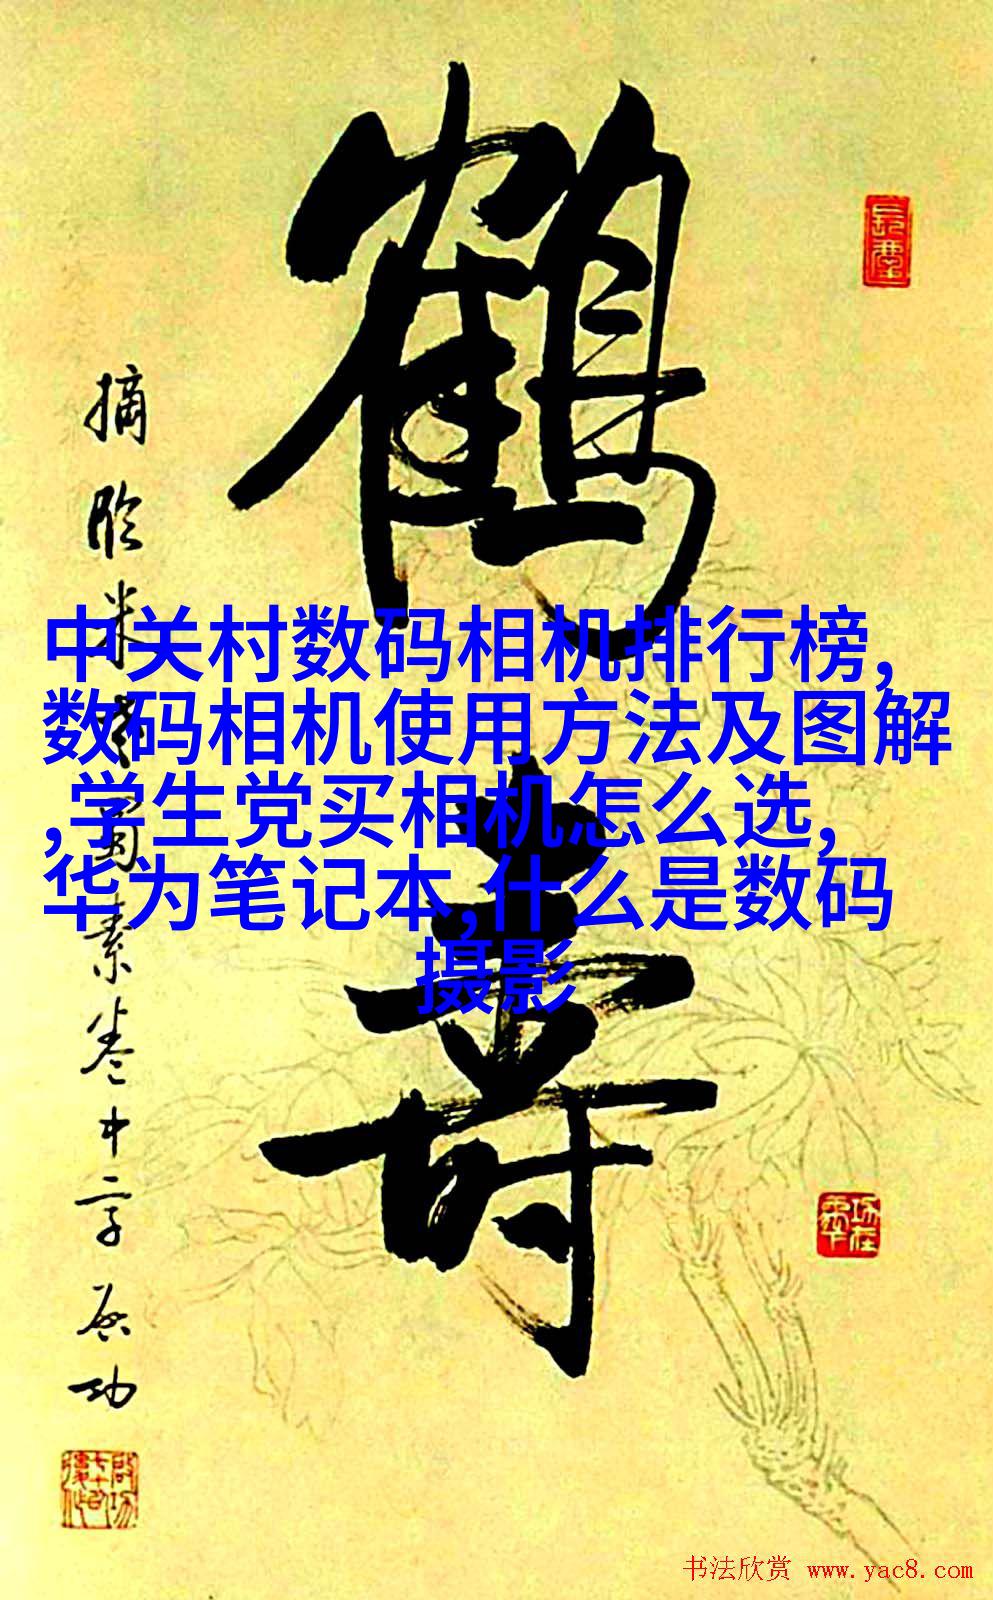 鹤寿
摘临米书蜀素卷中字 启功
中关村数码相机排行榜,
数码相机使用方法及图解
,学生党买相机怎么选,
华为笔记本,什么是数码
摄影
书法欣赏 www.yac8.com